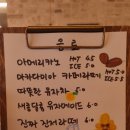 음료
아메리카노 HOT 4.5
ICE 5.0
마카다미아 카페라떼 HOT 5.0
ICE 5.5
따뜻한 유자차 5.0
새콤달콤 유자에이드 6.0
진짜 진저라떼 6.0